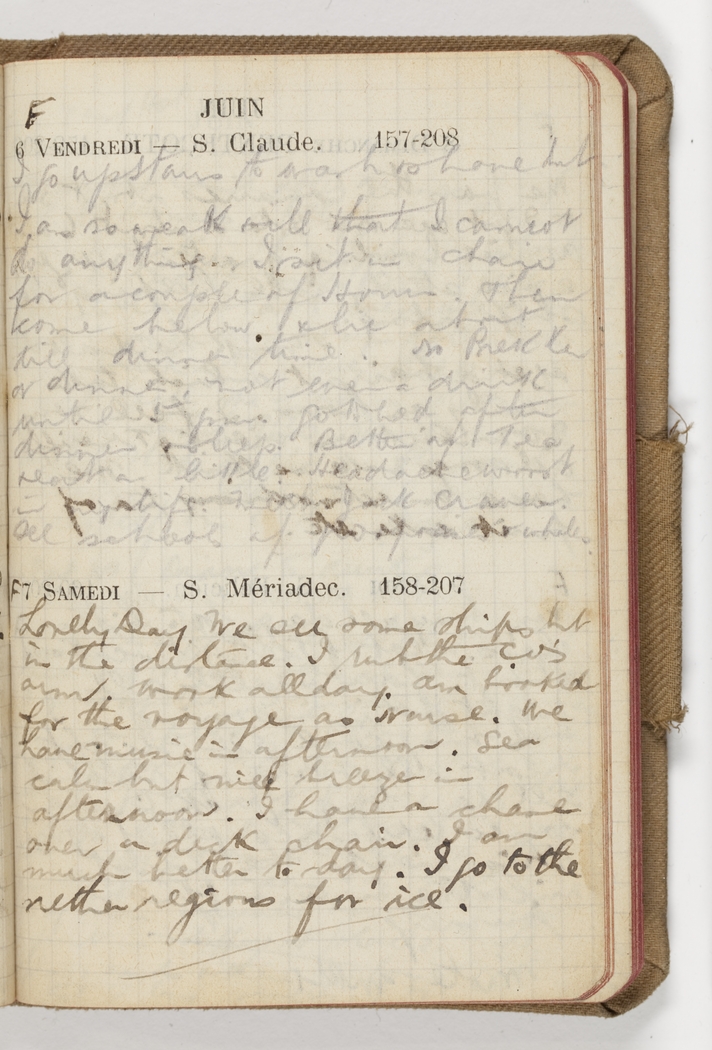 F
JUIN
6 VENDREDI — S. Claude. 157-208
I go upstairs to wash & shave but
I am so weak & ill that I cannot
do anything. I sit in chair
for a couple of Hours. Then
come below & lie about
till dinner time. No Brekker
or dinner, not even a drink
until 5 pm. got bed after
dinner sleep. Better at Tea
eat a little. Headache worst
in
See school of whales.
F 7 SAMEDI — S. Mériadec. 158-207
Lovely Day. We see some ships but
in the distance. I rub the CO's
arm. Work all day. am booked
for the voyage as nurse. We
have music in afternoon. Sea
calm but nice breeze in
afternoon. I have a chase
over a deck chair. I am
much better to day. I go to the
nether regions for ice.